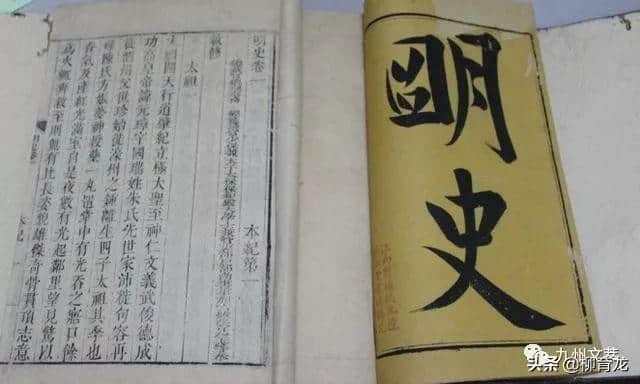 明史卷一
本紀第一
敕修
太祖一
太祖開天行道肇紀立極大聖至神仁文義武俊德成
功高皇帝諱元璋字國瑞姓朱氏先世家沛徙句容再
徙泗州父世珍始徙濠州之鍾離生四子太祖其季也
母陳氏方娠夢神授藥一丸置掌中有光吞之寤口餘
香氣及產紅光滿室自是夜數有光起鄰里望見驚以
為火輒奔救至則無有比長姿貌雄傑奇骨貫頂志意
本紀
明史
九州文萃
头条 @柳育龙